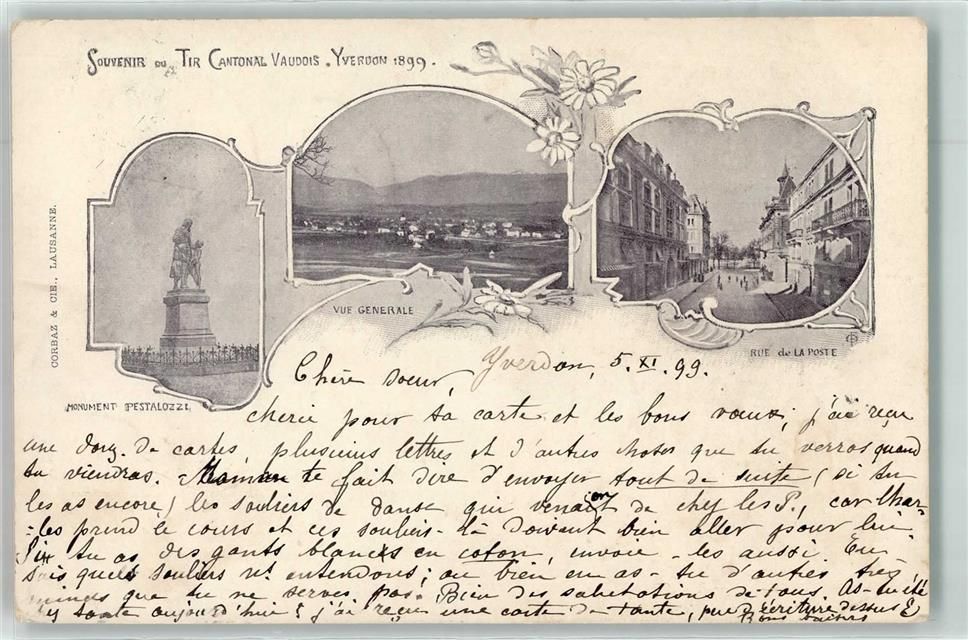 SOUVENIR DU TIR CANTONAL VAUDOIS. YVERDON 1899.
CORBAZ & CIE., LAUSANNE.
VUE GENERALE
RUE de LA POSTE
MONUMENT PESTALOZZI
Yverdon, 5. XI. 99.
Chère soeur,
cherie pour ta carte et les bons voeux; j'ai reçu
une douz. de cartes, plusieurs lettres et d'autres choses que tu verras quand
tu viendras. Maman te fait dire d'envoyer tout de suite (si tu
les as encore) les souliers de danse qui venaient de chez les P., car Char-
-les prend le cours et ces souliers-là doivent bien aller pour lui.
Si tu as des gants blancs en coton, envoie-les aussi. Tu
sais quels souliers ns. entendons; ou bien en as-tu d'autres très
minces que tu ne serves pas. Bien des salutations de tous. As-tu été
y sainte aujourd'hui? j'ai reçu une carte de tante, écriture dessus
Bons baisers